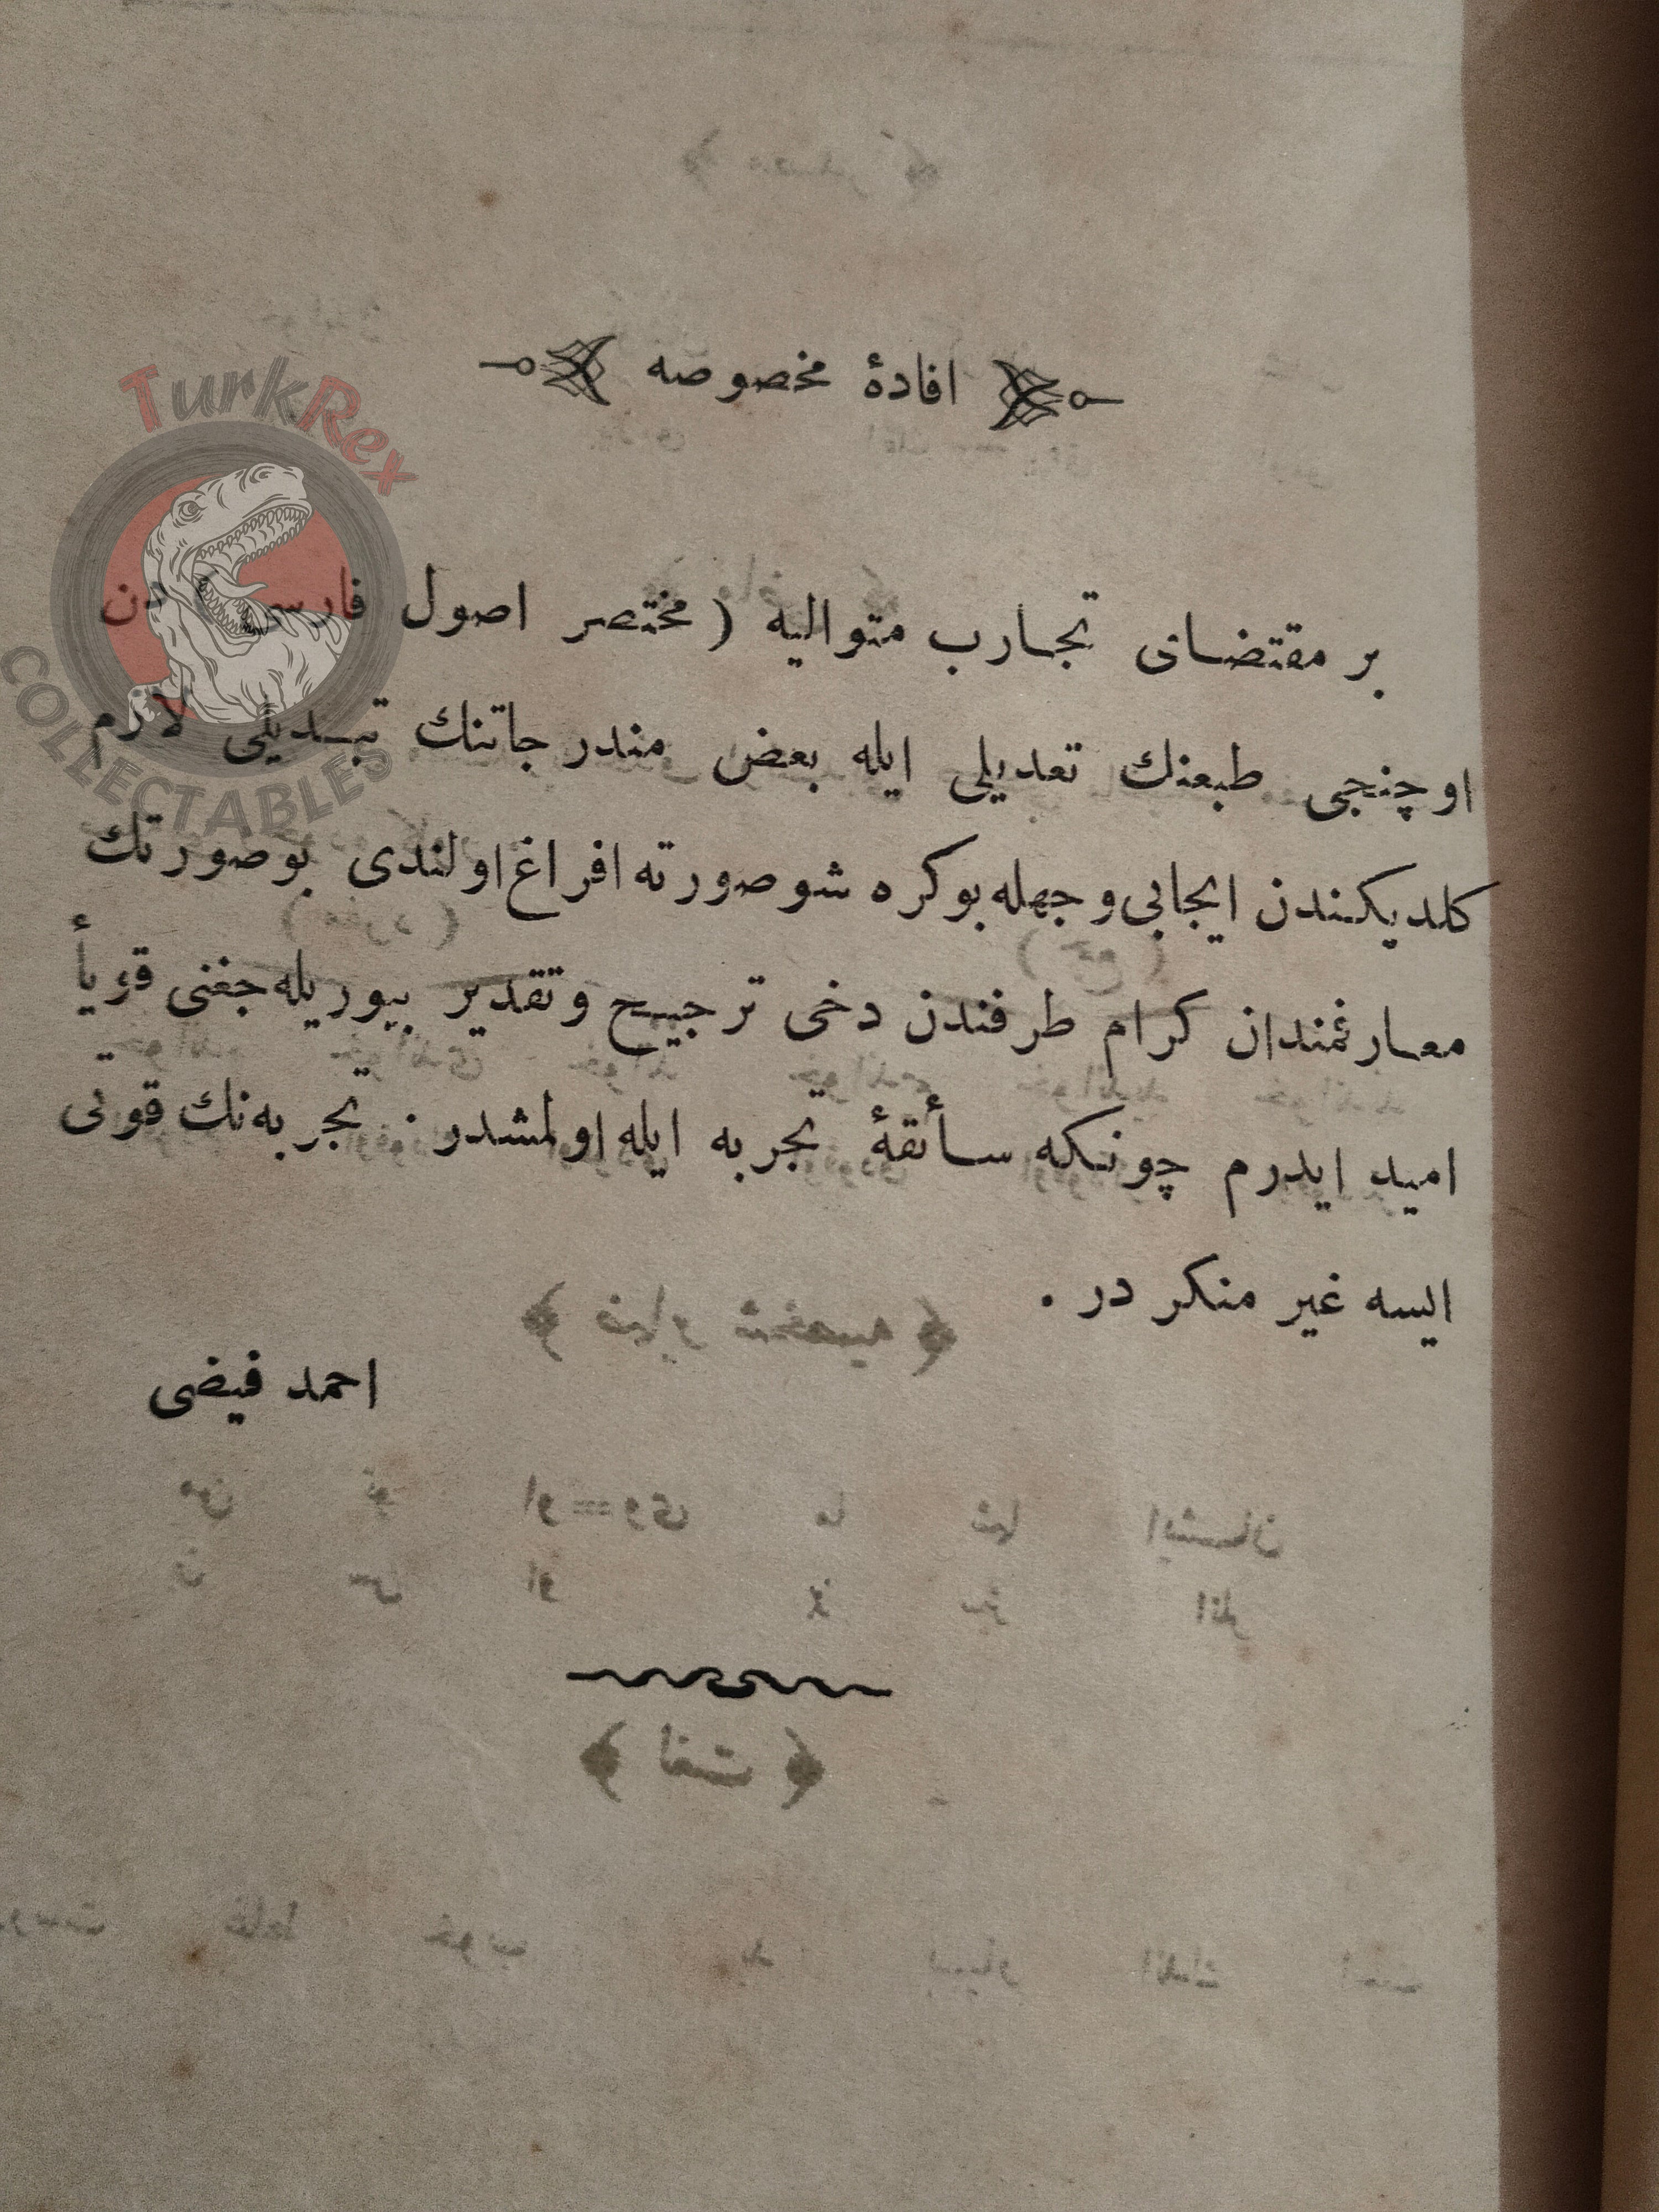 افادهٔ مخصوصه
TurkRex
COLLECTABLES
بر مقتضای تجارب متوالیه ( مختصر اصول فارسی دن
اوچنجی طبعنك تعدیلی ایله بعض مندرجاتنك تبدیلی لازم
كلدیكندن ایجابی وجهله بوكره شوصورته افراغ اولندی بوصورتك
معارفمندان كرام طرفندن دخی ترجیح وتقدیر بیوریله جغنی قویأ
امید ایدرم چونكه سأئقهٔ تجربه ایله اولمشدر . تجربه نك قوتی
ایسه غیر منكر در .
احمد فیضی